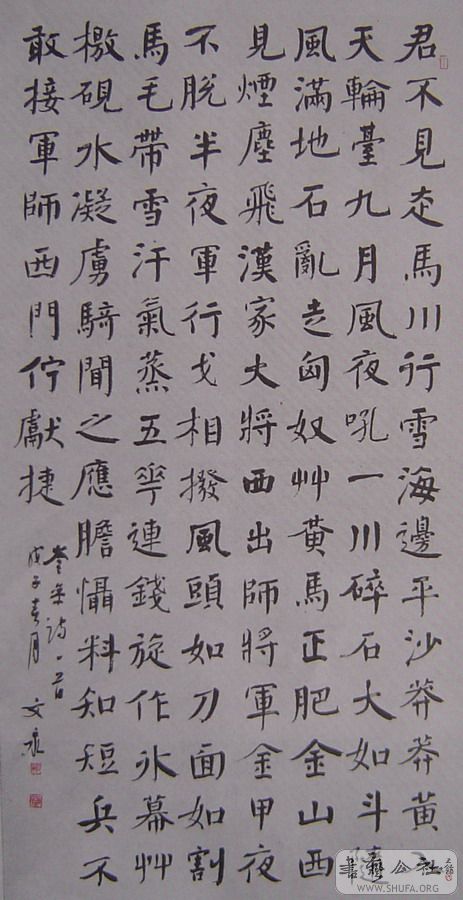 君不見走馬川行雪海邊平沙莽莽黃入
天輪臺九月風夜吼一川碎石大如斗隨
風滿地石亂走匈奴艸黃馬正肥金山西
見煙塵飛漢家大將西出師將軍金甲夜
不脫半夜軍行戈相撥風頭如刀面如割
馬毛帶雪汗氣蒸五華連錢旋作冰幕艸
檄硯水凝虜騎聞之應膽懾料知短兵不
敢接軍師西門佇獻捷
岑參詩一首
戊子春月 文
書藝公社
WWW.SHUFA.ORG